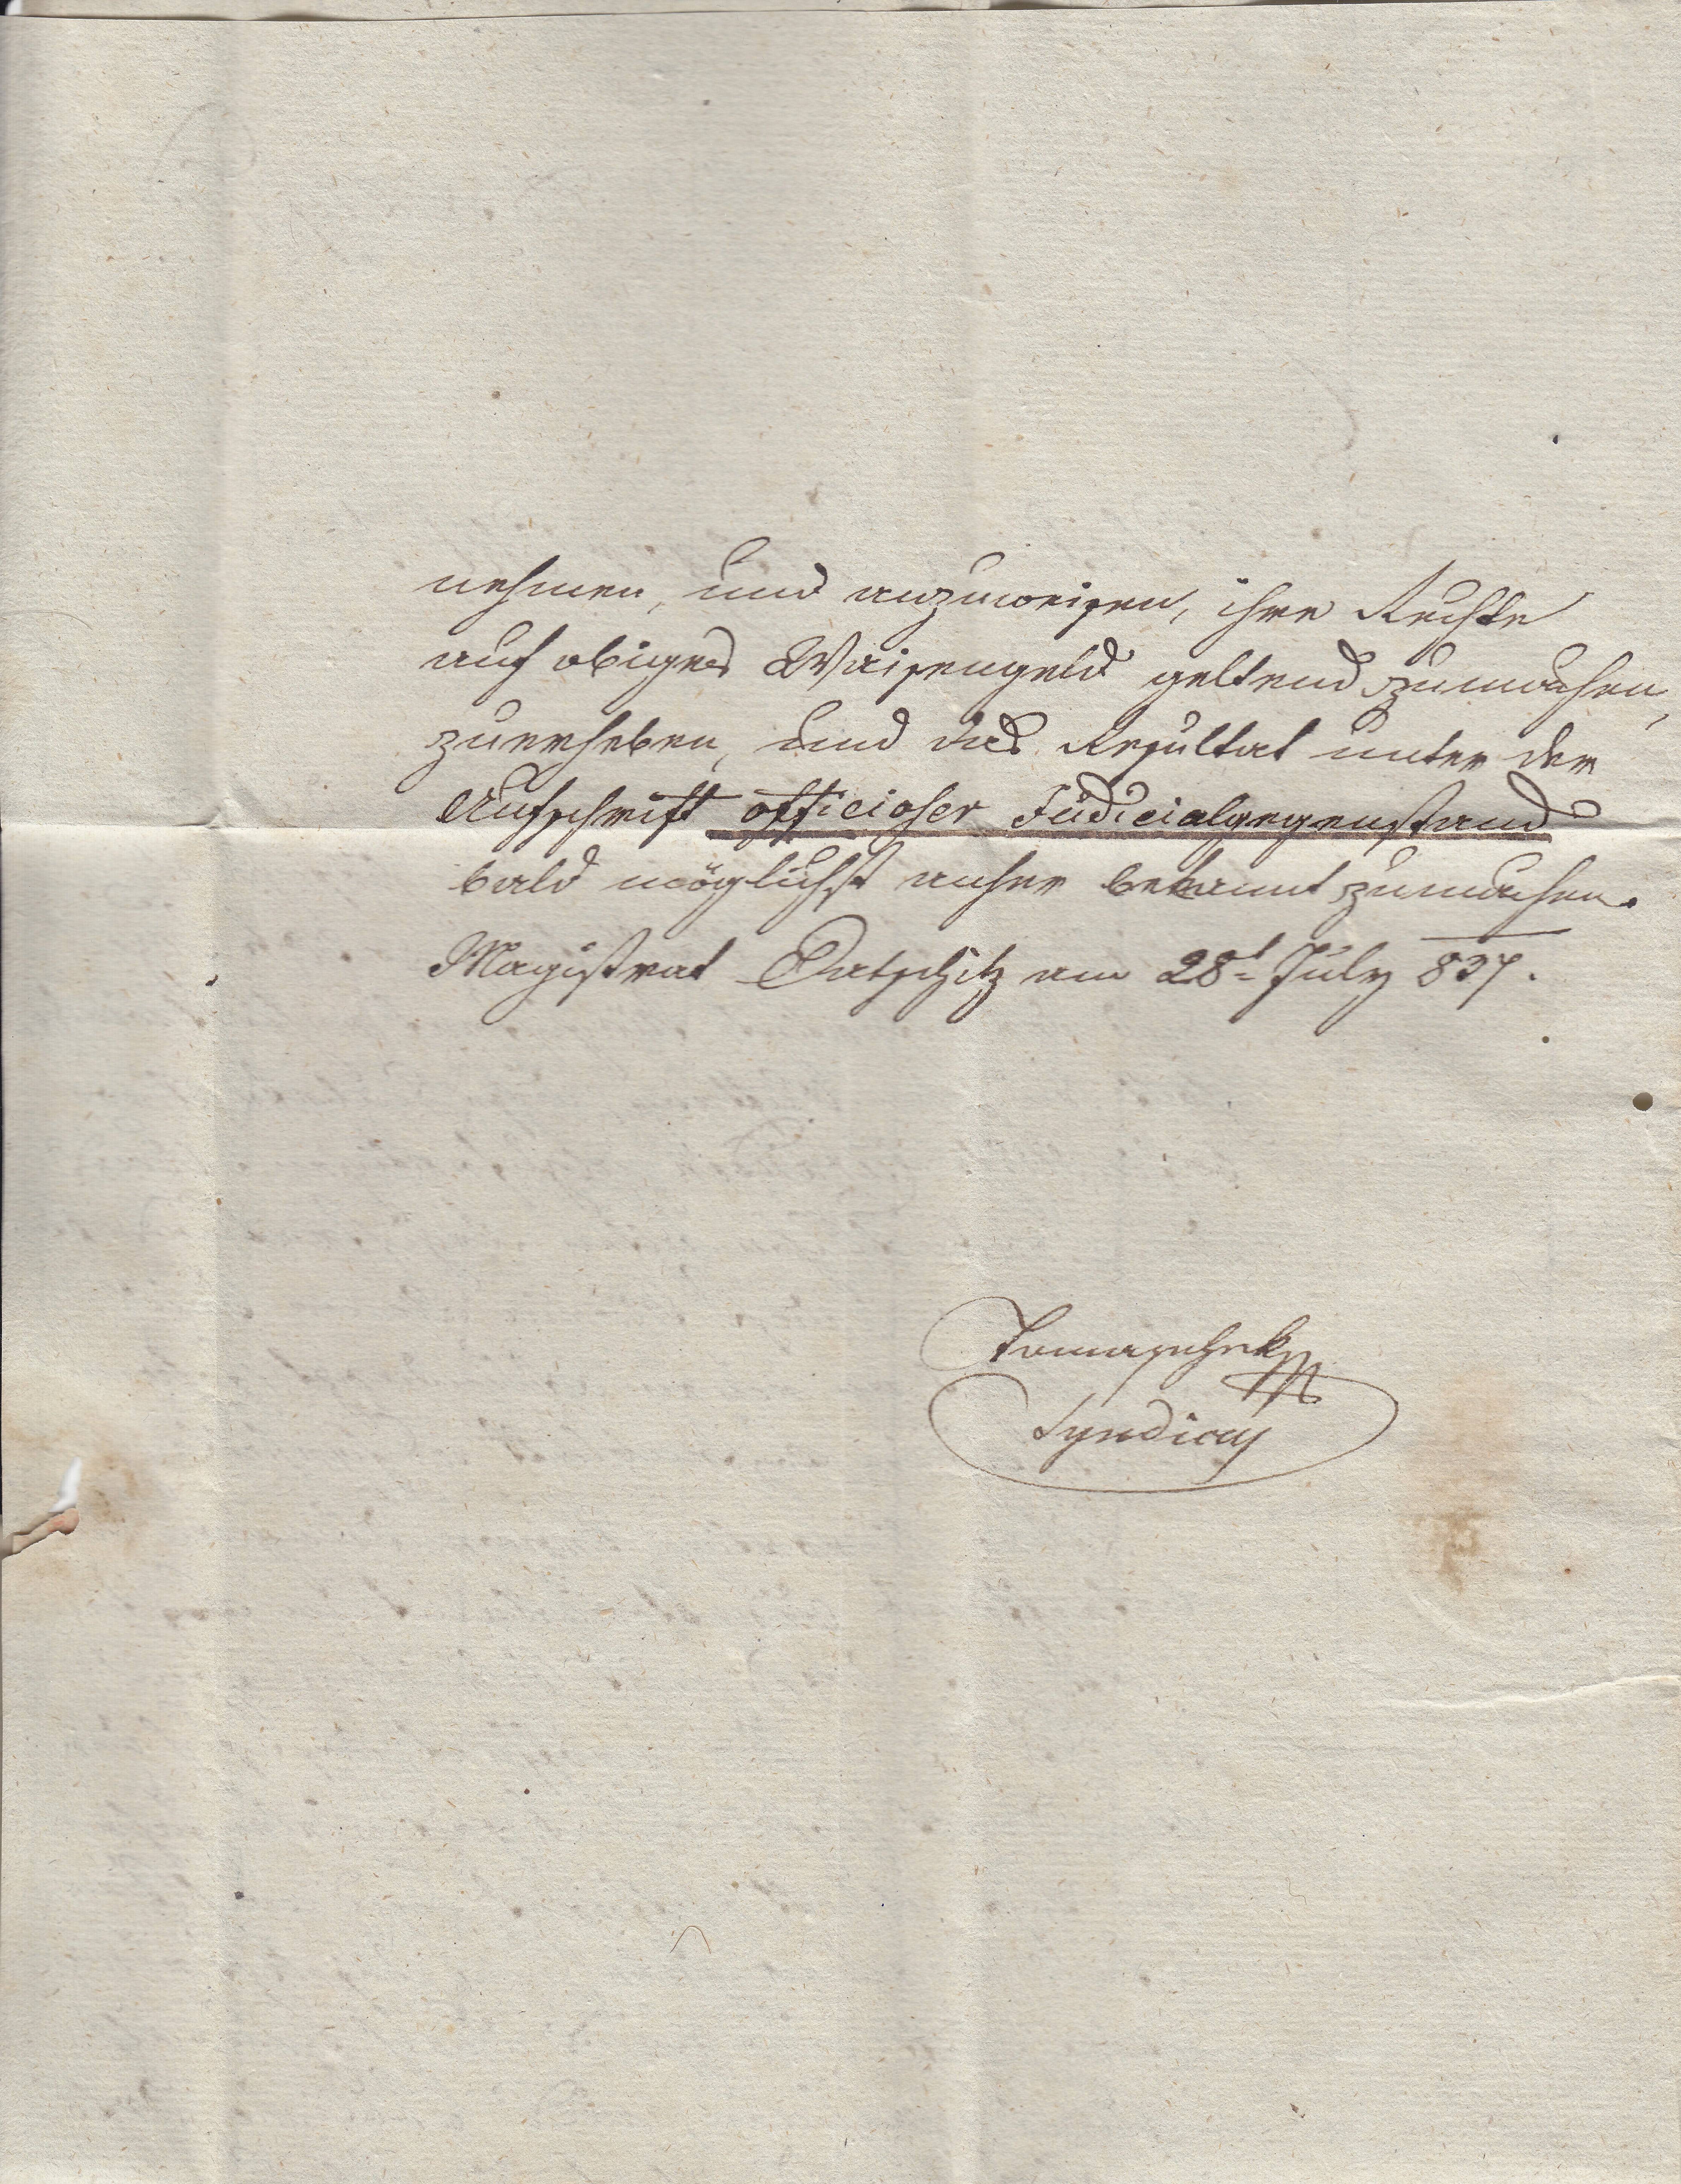 nehmen, und anzuweisen, ihre Rechte
auf obiges Waisengeld geltend zumachen,
zuerheben, und das Resultat unter der
Aufschrift officioser Judicialgegenstand
bald möglichst anher bekannt zumachen.
Magistrat Datschitz am 28t July 837.
Tomaschek
Syndicus